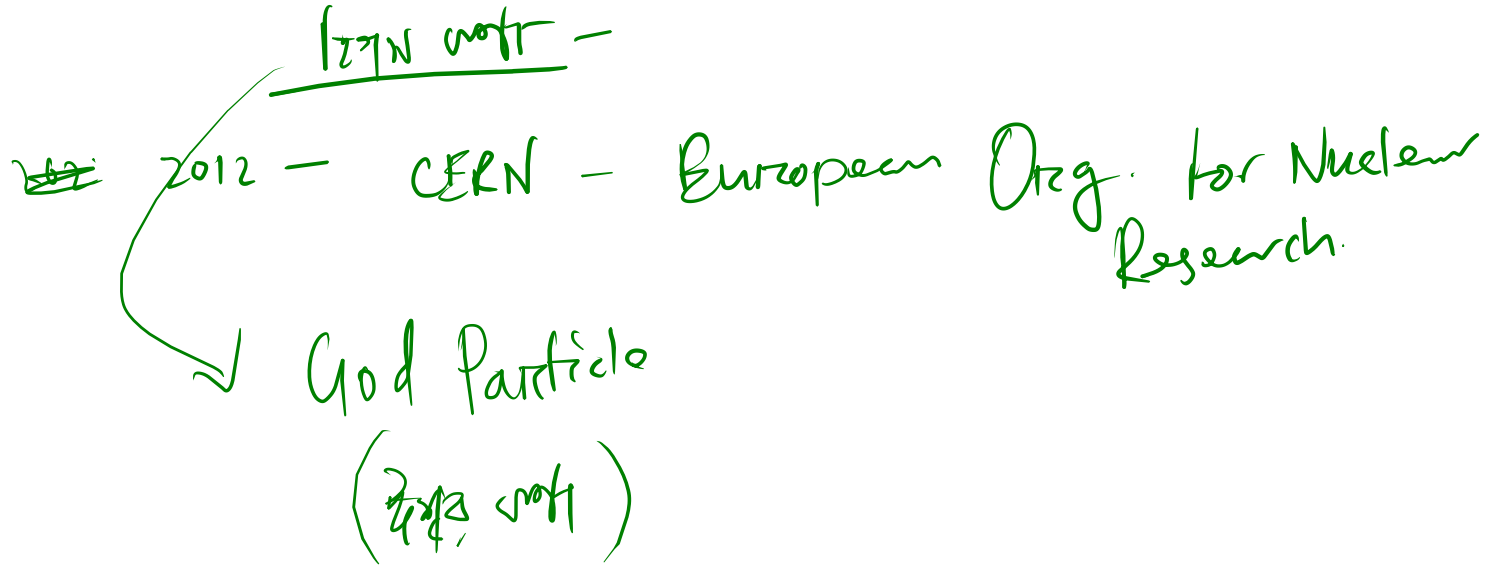 হিগস কণা -
2012 - CERN - European Org. for Nuclear
Research.
God Particle
(ঈশ্বর কণা)